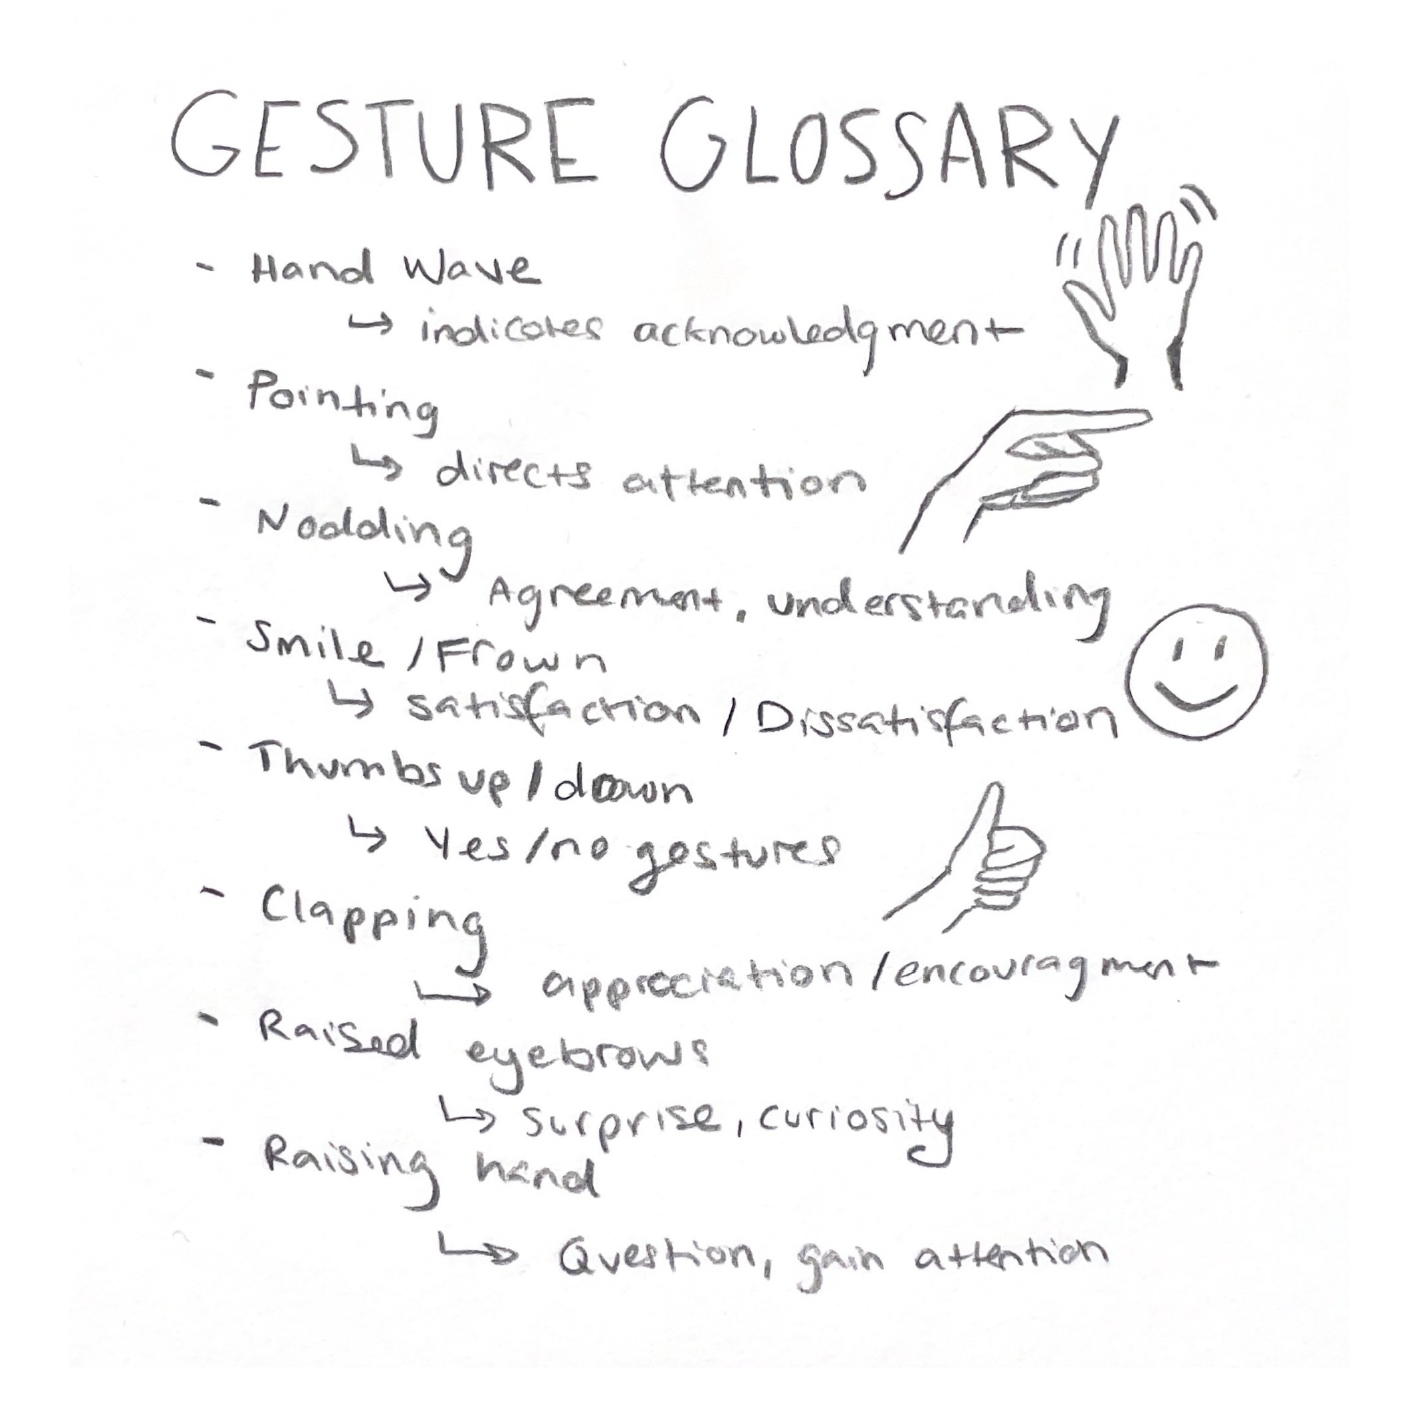 GESTURE GLOSSARY
- Hand Wave
↳ indicates acknowledgment
- Pointing
↳ directs attention
- Nodding
↳ Agreement, understanding
- Smile / Frown
↳ satisfaction / Dissatisfaction
- Thumbs up / down
↳ Yes/no gestures
- Clapping
↳ appreciation / encouragment
- Raised eyebrows
↳ surprise, curiosity
- Raising hand
↳ Question, gain attention